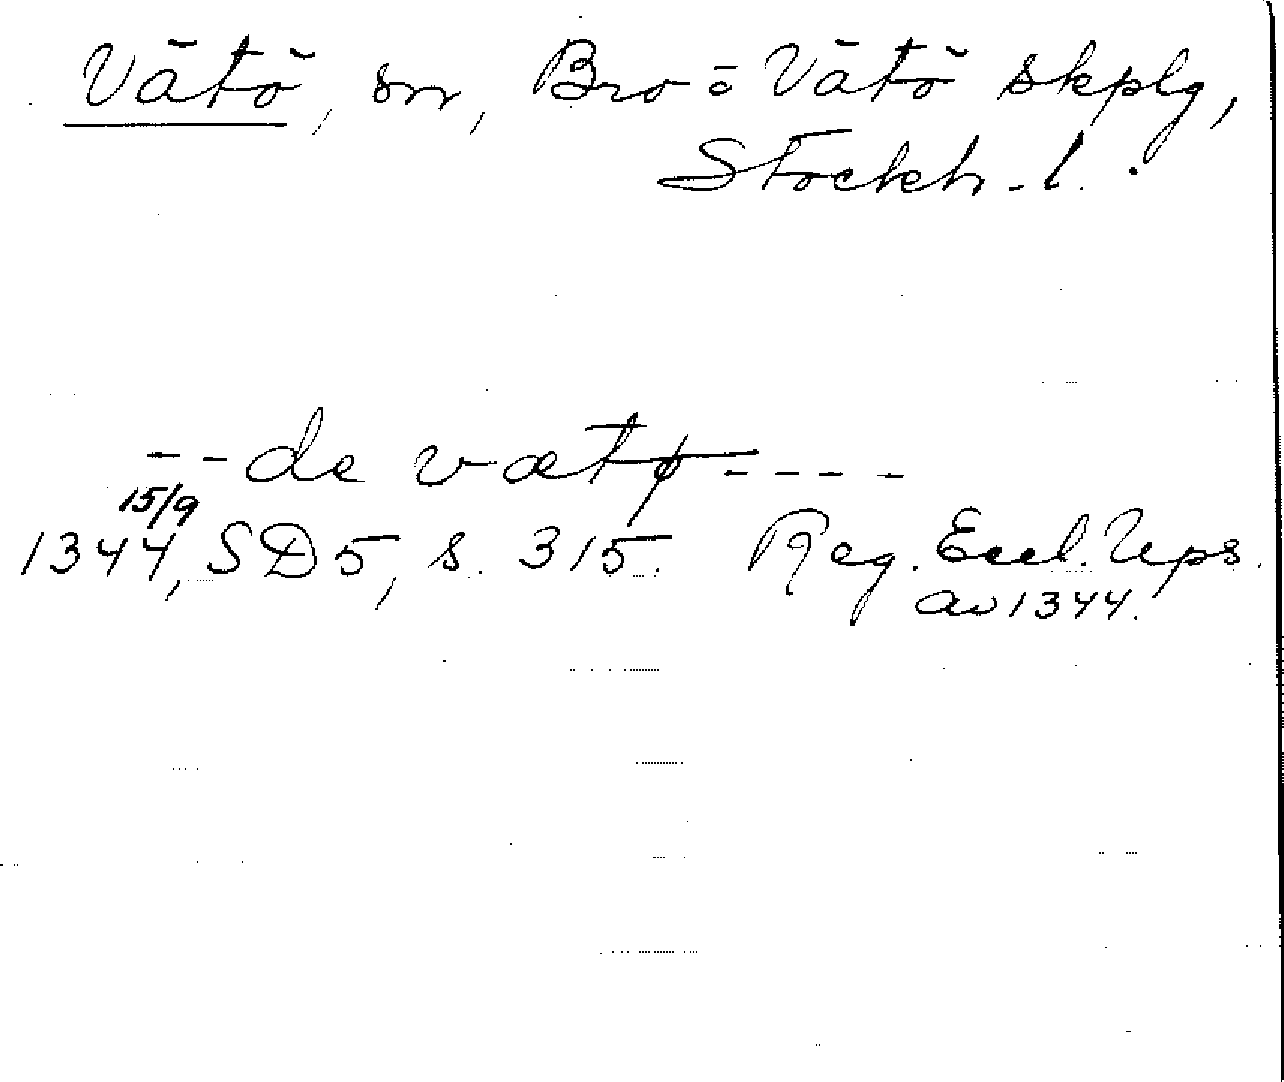 Vätö, sn, Bro o Vätö skplg,
Stockh. l.
-- de vætø ----
15/9
1344, SD 5, s. 315. Reg. Eccl. Ups.
av 1344.